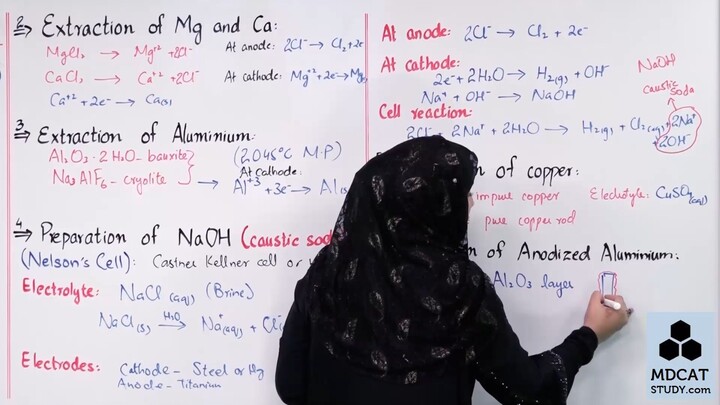 2 ⇒ Extraction of Mg and Ca:
MgCl₂ → Mg⁺² +2Cl⁻
At anode: 2Cl⁻ → Cl₂ + 2e⁻
CaCl₂ → Ca⁺² +2Cl⁻
At cathode: Mg⁺²+2e⁻→Mg(s)
Ca⁺² +2e⁻ → Ca(s)
3 ⇒ Extraction of Aluminium:
Al₂O₃·2H₂O – bauxite
(2045°C M.P)
Na₃AlF₆ – cryolite
At cathode:
→ Al⁺³ +3e⁻ → Al(s)
4 ⇒ Preparation of NaOH (caustic sod
(Nelson's Cell): Castner Kellner cell or
Electrolyte: NaCl (aq) (Brine)
NaCl(s) H₂O → Na⁺(aq) + Cl⁻
Electrodes: Cathode – Steel or Hg
Anode – Titanium
At anode: 2Cl⁻ → Cl₂ + 2e⁻
At cathode:
2e⁻ + 2H₂O → H₂(g) + OH⁻
Na⁺ + OH⁻ → NaOH
NaOH
caustic soda
Cell reaction:
2Cl⁻ + 2Na⁺ + 2H₂O → H₂(g) + Cl₂(aq) + 2Na⁺
+ 2OH⁻
of copper:
impure copper
Electrolyte: CuSO₄(aq)
pure copper rod
of Anodized Aluminium:
Al₂O₃ layer
MDCAT
STUDY.com